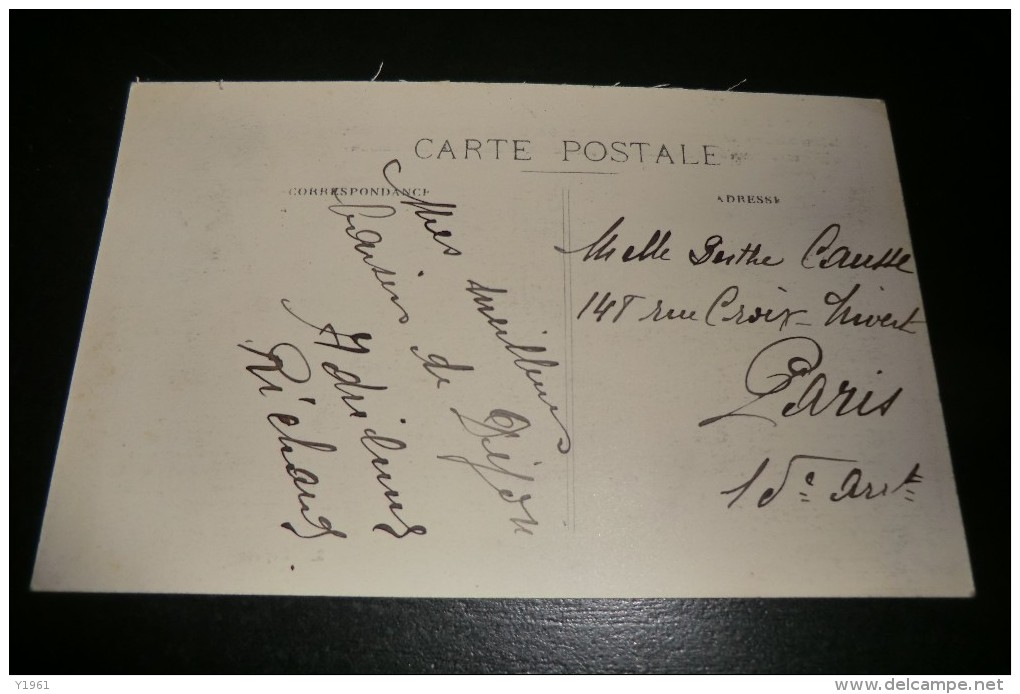 CARTE POSTALE
CORRESPONDANCE
ADRESSE
Mes meilleurs
baisers de Dijon
Richard
Melle Berthe Causse
rue Croix-Nivert
Paris
15e Arrt
Y1961
www.delcampe.net